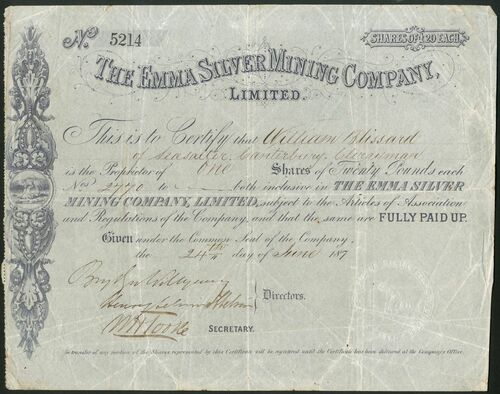 No 5214
SHARES OF £20 EACH.
THE EMMA SILVER MINING COMPANY,
LIMITED.
This is to Certify that William Blissard
of Seasalter, Canterbury, Clergyman
is the Proprietor of One Shares of Twenty Pounds each
Nos. 2770 to - both inclusive in THE EMMA SILVER
MINING COMPANY, LIMITED, subject to the Articles of Association
and Regulations of the Company, and that the same are FULLY PAID UP.
Given under the Common Seal of the Company,
the 24th day of June 187
Directors.
SECRETARY.
No transfer of any portion of the Shares represented by this Certificate will be registered until the Certificate has been delivered at the Company's Office.